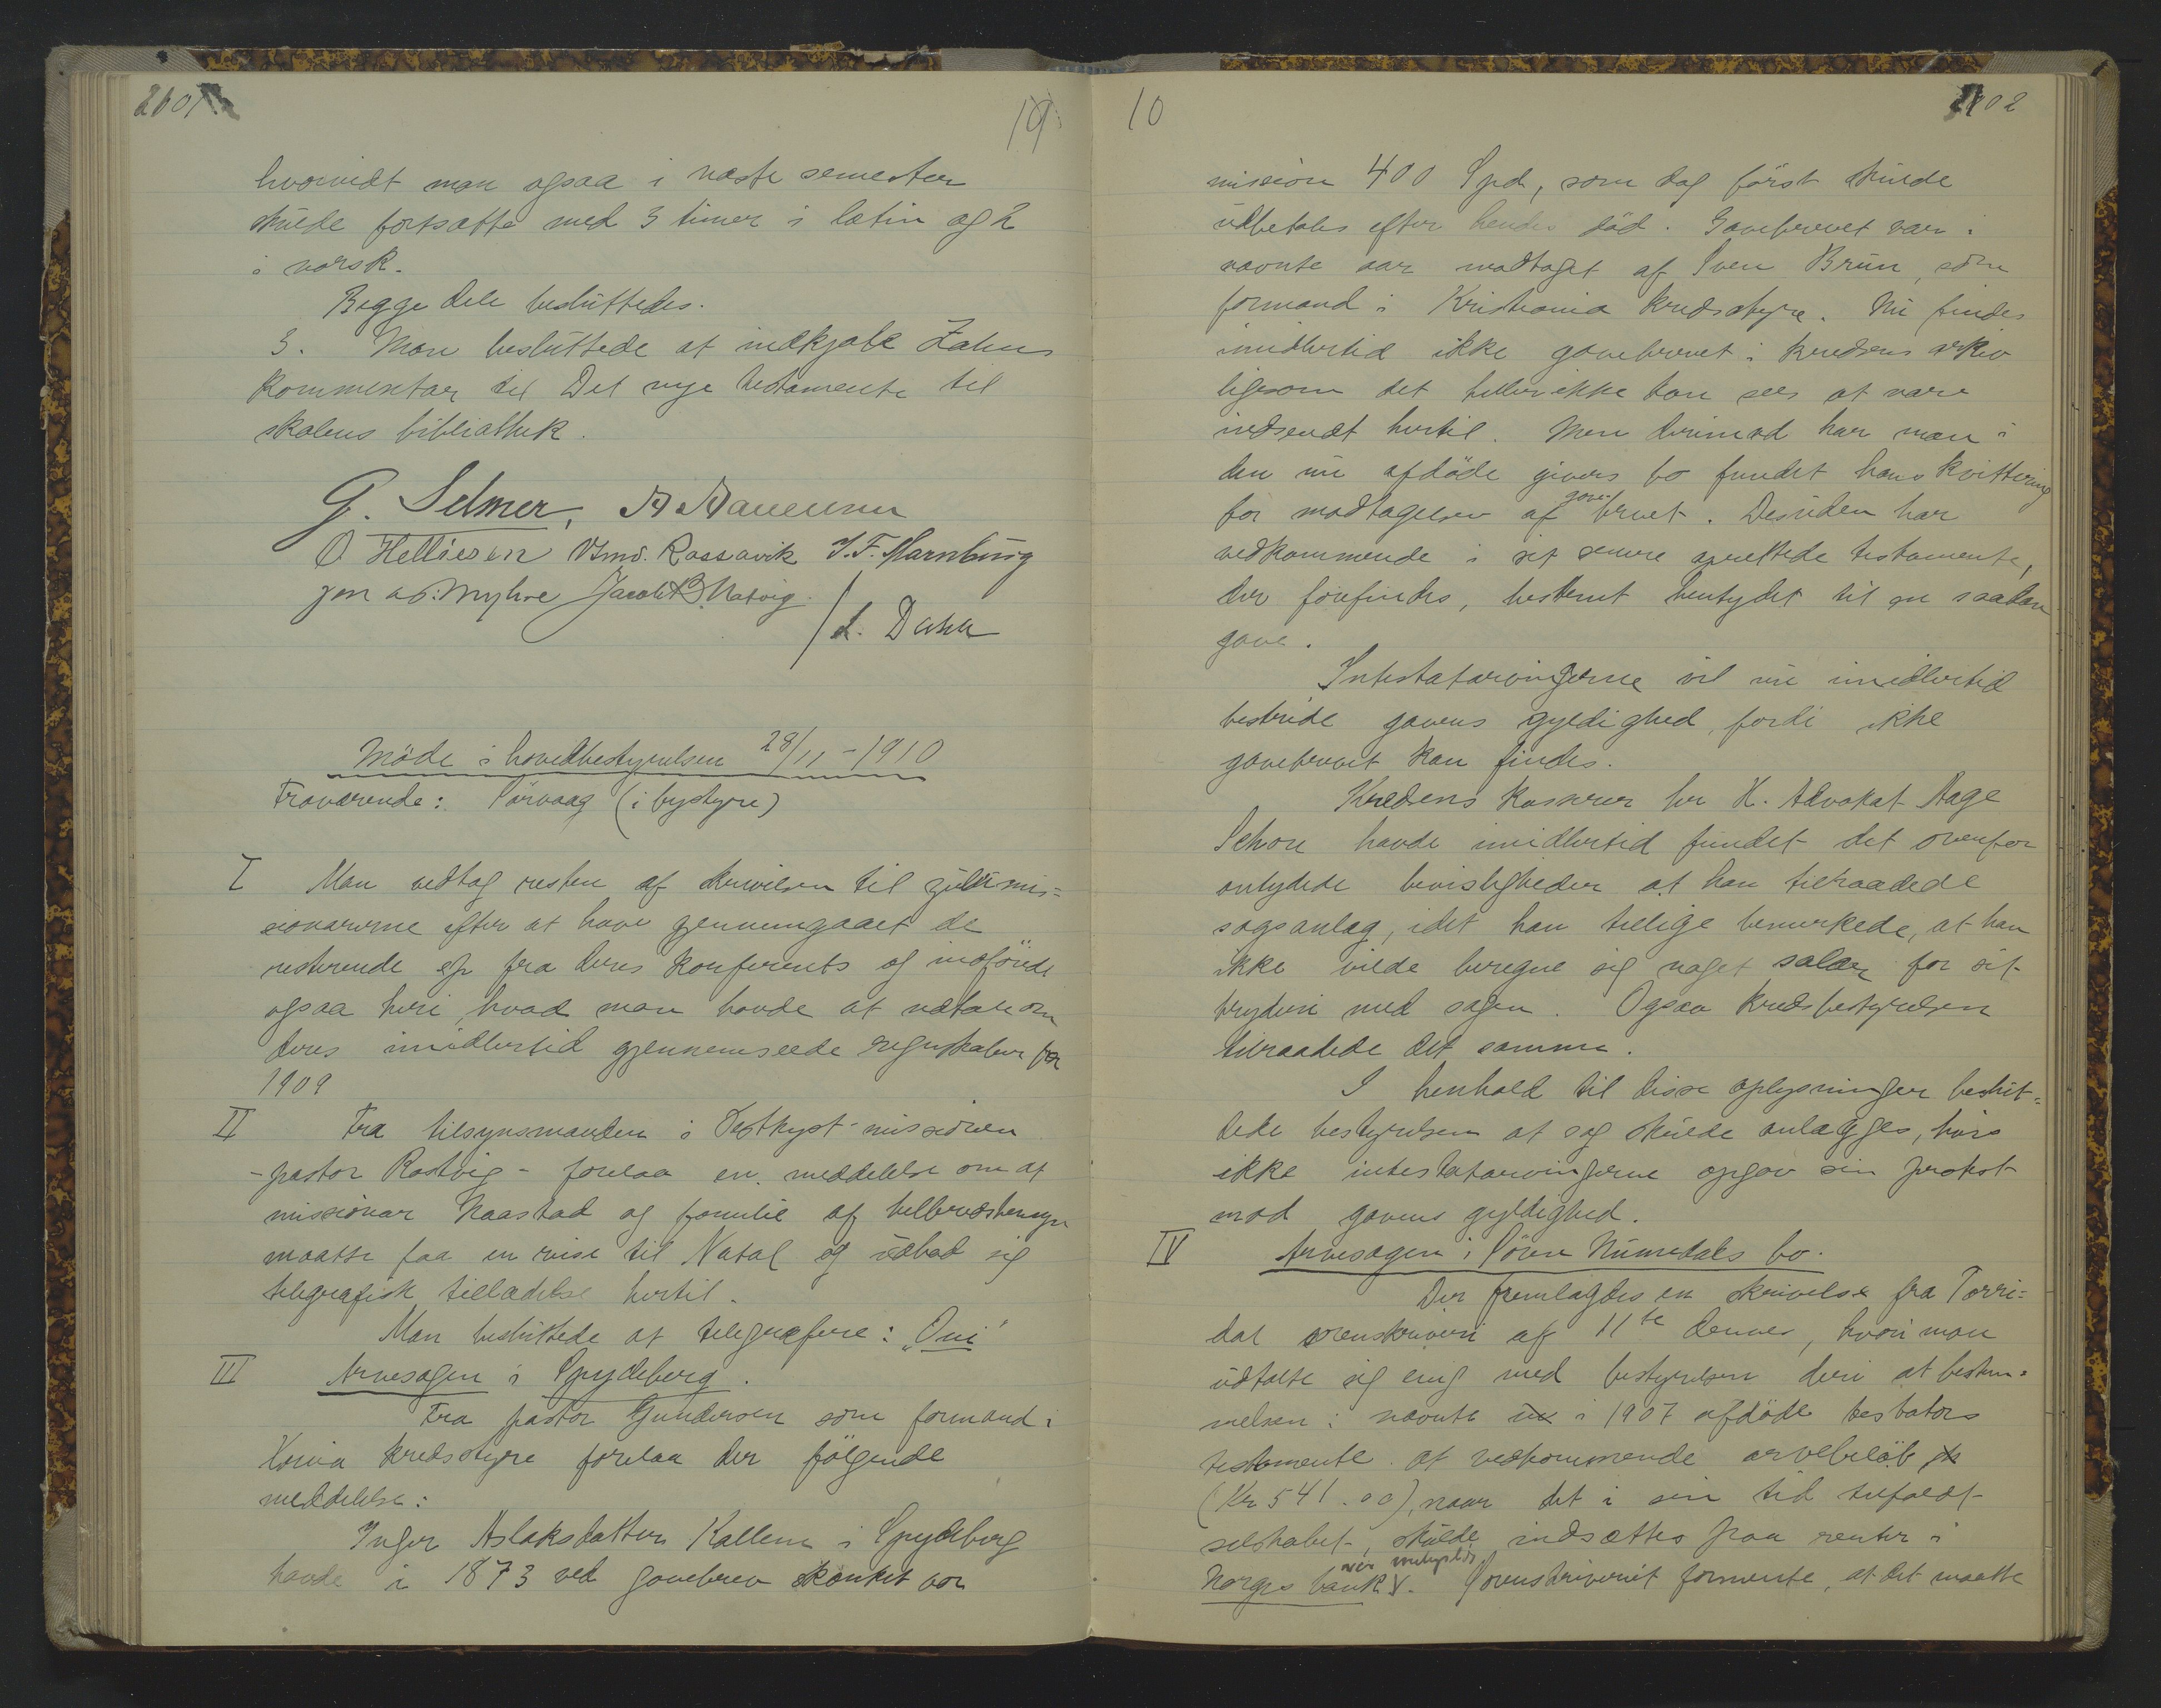 19
hvorvidt man ogsaa i næste semester
skulde fortsætte med 3 timer i latin og 2
i norsk.
Begge dele besluttedes.
3. Man besluttede at indkjøbe Zahns
kommentar til Det nye testamente til
skolens bibliothek.
G. Selmer.
O Helliesen Vsmd. Rossavik S. F. Marnburg
Jon as: Myhre Jacob B. Natvig
L. Dahn
Møde i hovedbestyrelsen 28/11 - 1910
Fraværende: Sörvaag (i bystyre)
I Man vedtog resten af skrivelsen til zulumis=
sionærerne efter at have gjennemgaaet de
resterende §r fra deres konferents og indførte
ogsaa heri hvad man havde at udtale om
deres imidlertid gjennemseede regnskaber for
1909
II Fra tilsynsmanden i Vestkyst-missionen
- pastor Røstvig - forelaa en meddelelse om at
missionær Naastad og familie af helbredshensyn
maatte faa en reise til Natal og udbad sig
telegrafisk tilladelse hertil.
Man besluttede at telegrafere: „Oui"
III Arvesagen i Spydeberg.
Fra pastor Gundersen som formand i
Kr.ania kredsstyre forelaa der følgende
meddelelse:
Inger Aslaksdatter Kallem i Spydeberg
havde i 1873 ved gavebrev skjænket vor
10
mission 400 Spd, som dog først skulde
udbetales efter hendes død. Gavebrevet var i
nævnte aar modtaget af Sven Brun, som
formand i Kristiania kredsstyre. Nu findes
imidlertid ikke gavebrevet i kredsens arkiv
ligesom det heller ikke kan sees at være
indsendt hertil. Men derimod har man i
den nu afdøde givers bo fundet hans kvittering
for modtagelsen af gave-brevet. Desuden har
vedkommende i sit senere oprettede testamente,
der forefindes, bestemt hentydet til en saadan
gave.
Intestatarvingerne vil nu imidlertid
bestride gavens gyldighed, fordi ikke
gavebrevet kan findes.
Kredsens kasserer hr H. Advokat Aage
Schou havde imidlertid fundet det ovenfor
antydede bevisligheder at han tilraadede
sagsanlæg, idet han tillige bemerkede, at han
ikke vilde beregne sig noget salær for sit
bryderi med sagen. Ogsaa kredsbestyrelsen
tilraadede det samme.
I henhold til disse oplysninger beslut=
tede bestyrelsen at sag skulde anlægges, hvis
ikke intestatarvingerne opgav sin protest
mod gavens gyldighed.
IV Arvesagen i Sören Numedals bo.
Der fremlagdes en skrivelse fra Torri=
dal sorenskriveri af 11te dennes, hvori man
udtalte sig enig med bestyrelsen deri at bestem=
melsen i nævnte i 1907 afdöde testators
testamente at vedkommende arvebeløb
(Kr 541.00), naar det i sin tid tilfaldt
selskabet, skulde indsættes paa renter i
Norges bank. Sorenskriveriet formente, at det maatte